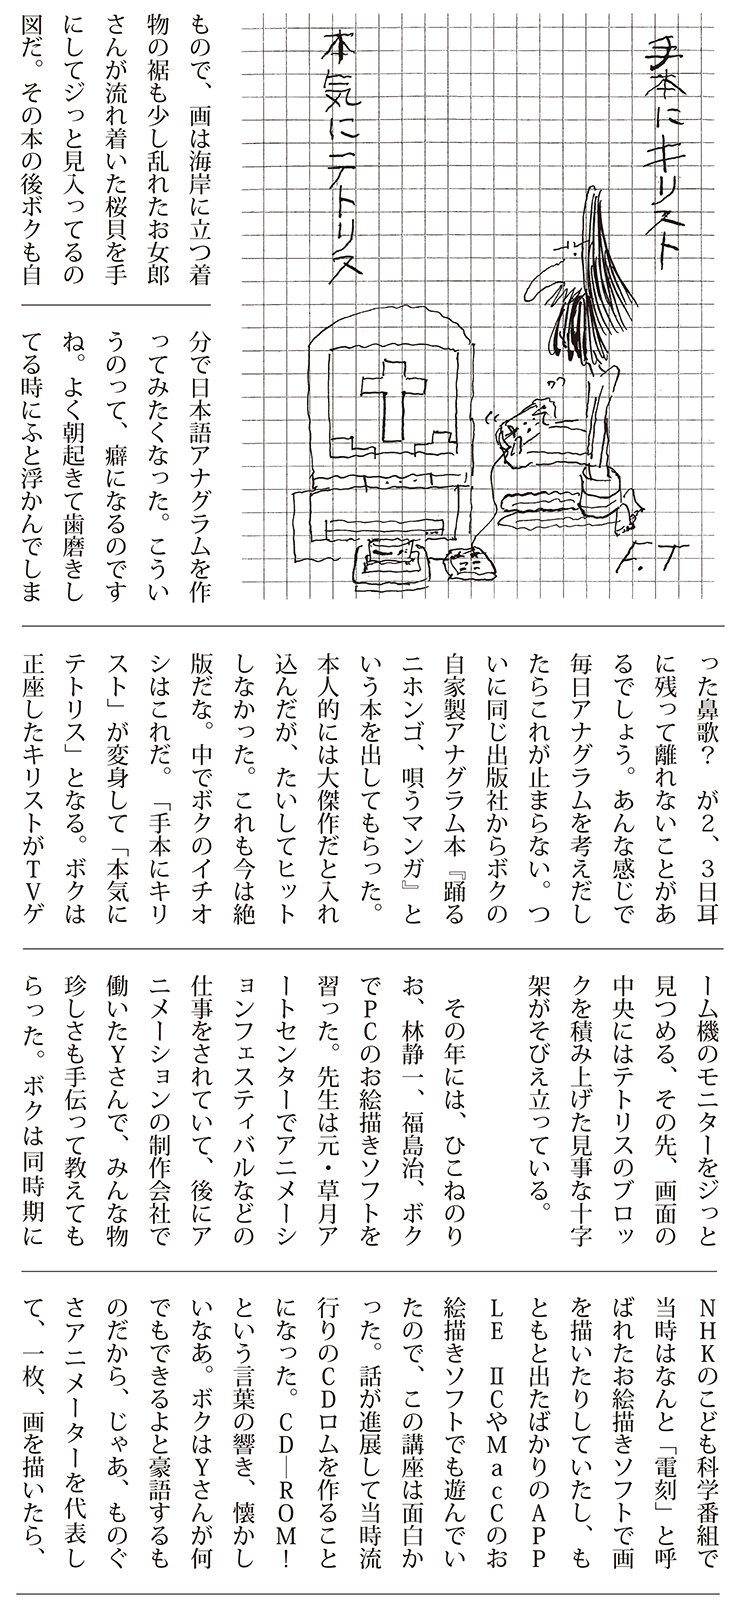 手本にキリスト
本気にテトリス
F.T
もので、画は海岸に立つ着
物の裾も少し乱れたお女郎
さんが流れ着いた桜貝を手
にしてジっと見入ってるの
図だ。その本の後ボクも自
分で日本語アナグラムを作
ってみたくなった。こうい
うのって、癖になるのです
ね。よく朝起きて歯磨きし
てる時にふと浮かんでしま
った鼻歌？　が２、３日耳
に残って離れないことがあ
るでしょう。あんな感じで
毎日アナグラムを考えだし
たらこれが止まらない。つ
いに同じ出版社からボクの
自家製アナグラム本『踊る
ニホンゴ、唄うマンガ』と
いう本を出してもらった。
本人的には大傑作だと入れ
込んだが、たいしてヒット
しなかった。これも今は絶
版だな。中でボクのイチオ
シはこれだ。「手本にキリ
スト」が変身して「本気に
テトリス」となる。ボクは
正座したキリストがＴＶゲ
ーム機のモニターをジっと
見つめる、その先、画面の
中央にはテトリスのブロッ
クを積み上げた見事な十字
架がそびえ立っている。
その年には、ひこねのり
お、林静一、福島治、ボク
でＰＣのお絵描きソフトを
習った。先生は元・草月ア
ートセンターでアニメーシ
ョンフェスティバルなどの
仕事をされていて、後にア
ニメーションの制作会社で
働いたＹさんで、みんな物
珍しさも手伝って教えても
らった。ボクは同時期に
ＮＨＫのこども科学番組で
当時はなんと「電刻」と呼
ばれたお絵描きソフトで画
を描いたりしていたし、も
ともと出たばかりのＡＰＰ
ＬＥ　ⅡＣやＭａｃＣのお
絵描きソフトでも遊んでい
たので、この講座は面白か
った。話が進展して当時流
行りのＣＤロムを作ること
になった。ＣＤ―ＲＯＭ！
という言葉の響き、懐かし
いなあ。ボクはＹさんが何
でもできるよと豪語するも
のだから、じゃあ、ものぐ
さアニメーターを代表し
て、一枚、画を描いたら、